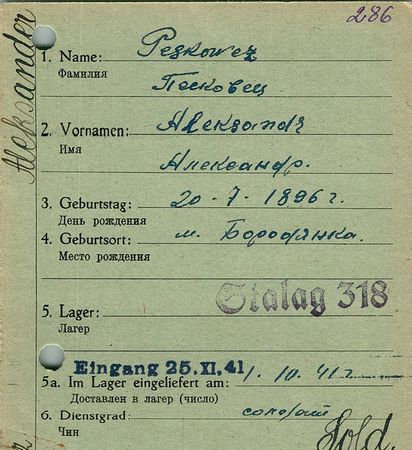 286
Aleksander
1. Name: Peskowez
Фамилия
Песковец
2. Vornamen: Aleksandr
Имя
Александр.
3. Geburtstag: 20-7-1896 г.
День рождения
4. Geburtsort: м. Бородянка.
Место рождения
Stalag 318
5. Lager:
Лагерь
Eingang 25. VI. 41
5a. Im Lager eingeliefert am: 1. 10. 41 г
Доставлен в лагерь (число)
6. Dienstgrad: солдат
Чин
Sold.